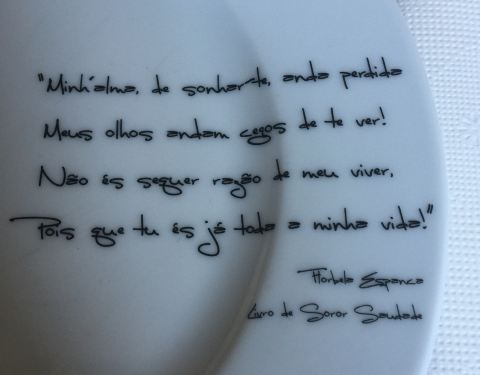 "Minh'alma, de sonhar-te, anda perdida
Meus olhos andam cegos de te ver!
Não és sequer razão de meu viver,
Pois que tu és já toda a minha vida!"
Florbela Espanca
Livro de Soror Saudade